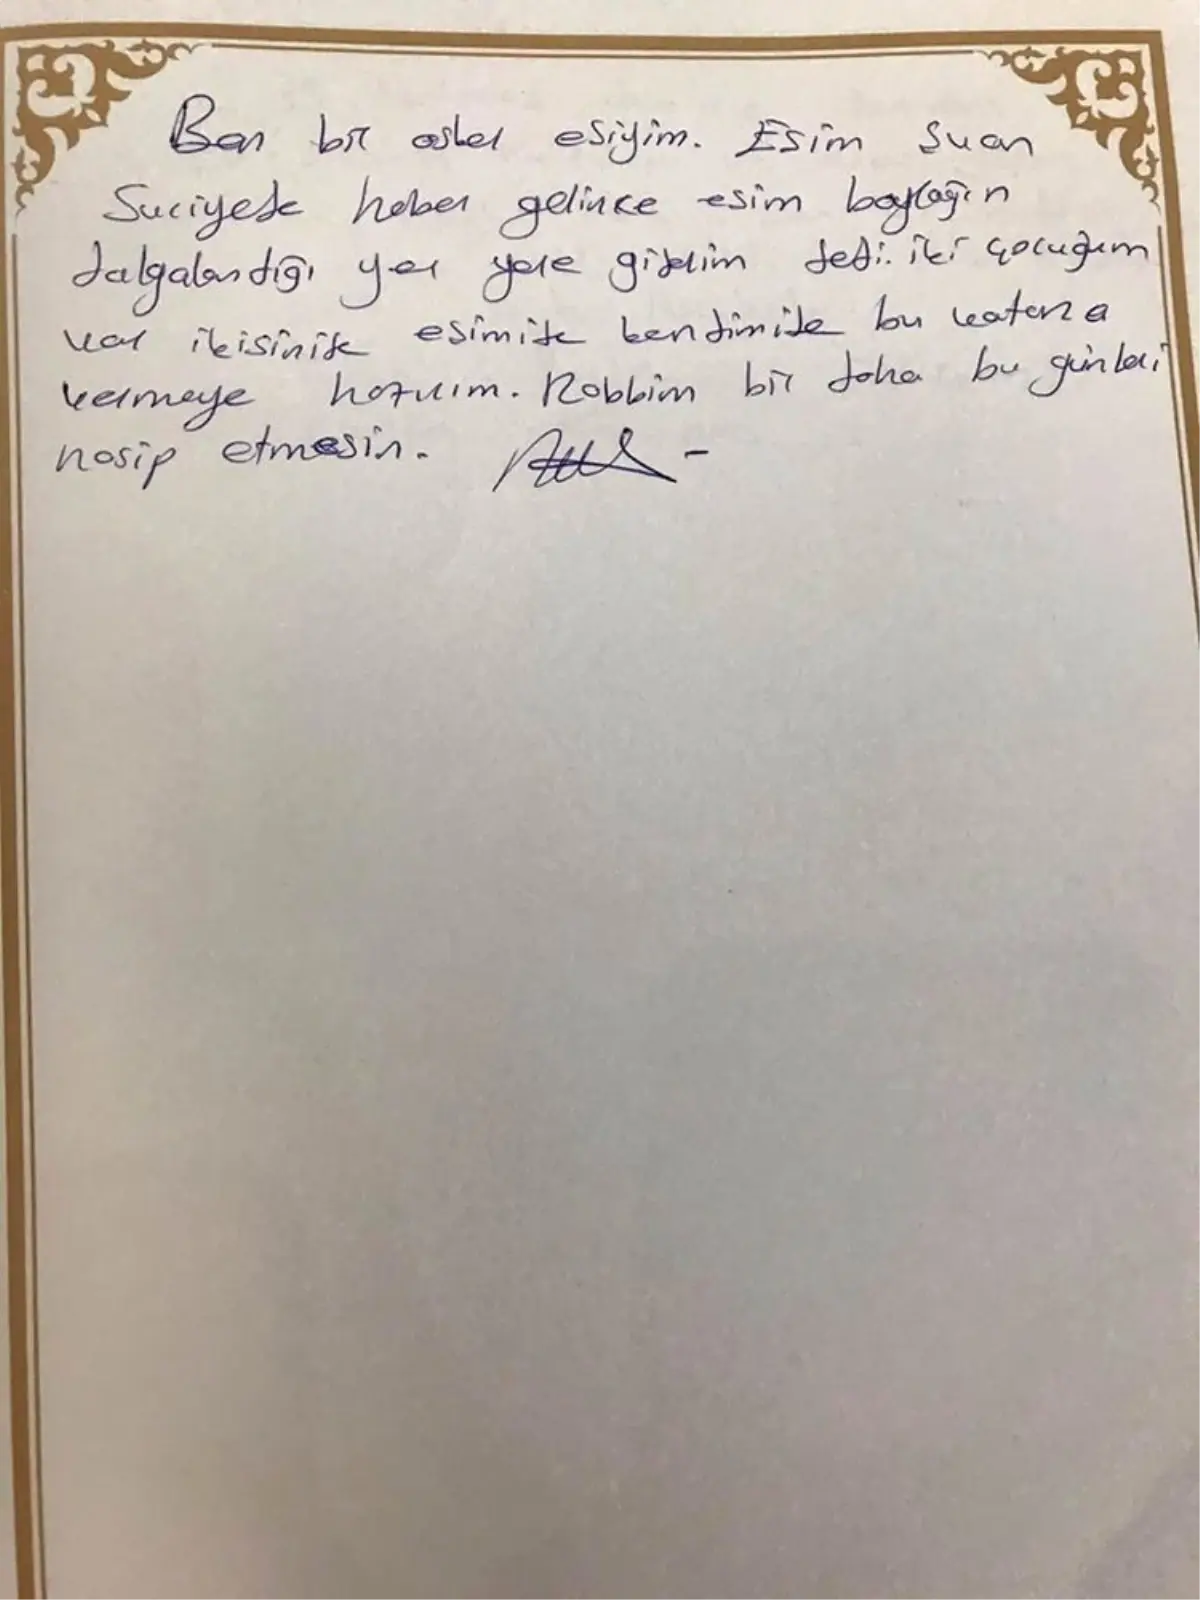 Ben bir asker eşiyim. Eşim şuan
Suriyede haber gelince eşim bayrağın
dalgalandığı yer yere gidelim dedi. iki çocuğum
var ikisinide eşimide kendimide bu vatana
vermeye hazırım. Rabbim bir daha bu günleri
nasip etmesin.